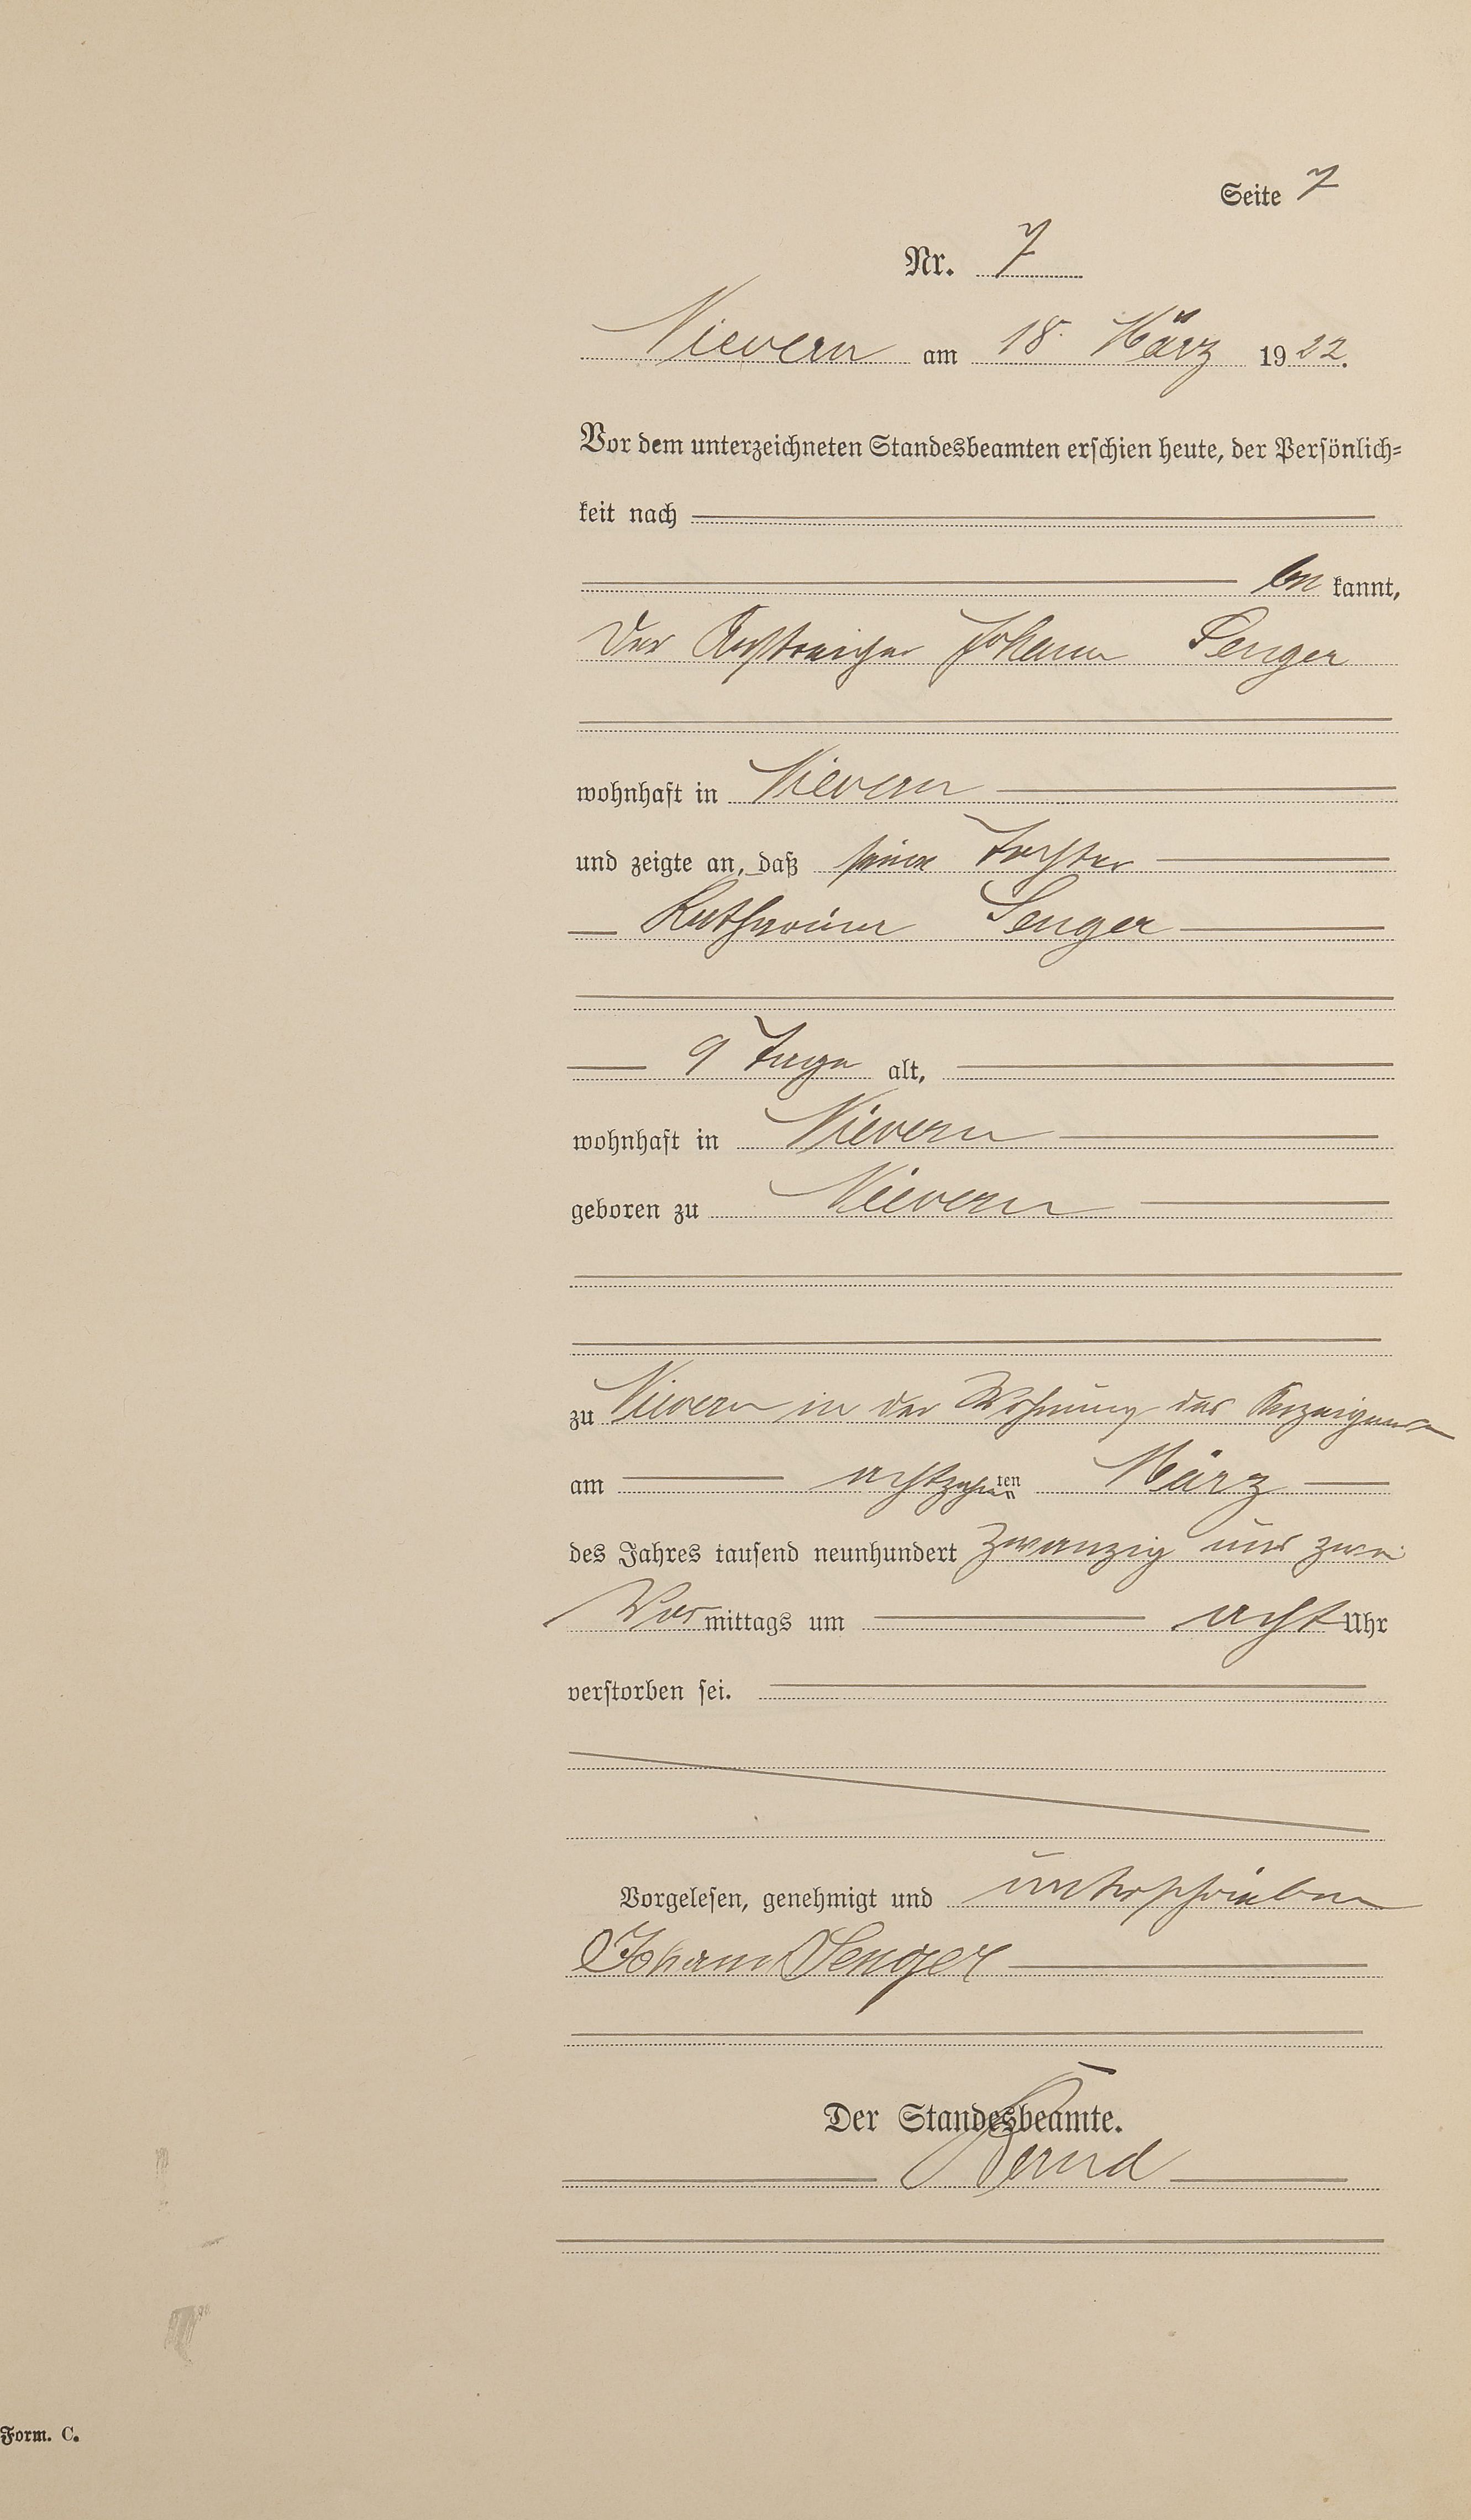 Seite 7
Nr. 7
Nievern am 18. März 1922.
Vor dem unterzeichneten Standesbeamten erschien heute, der Persönlich-
keit nach
be kannt,
Der Anstreicher Johann Senger
wohnhaft in Nievern
und zeigte an, daß seine Tochter
Katharina Senger
9 Tage alt,
wohnhaft in Nievern
geboren zu Nievern
zu Nievern in der Wohnung des Anzeigenden
am achtzehnten März
des Jahres tausend neunhundert zwanzig und zwei
Vormittags um acht Uhr
verstorben sei.
Vorgelesen, genehmigt und unterschrieben
Johann Senger
Der Standesbeamte.
Bernd
Form. C.